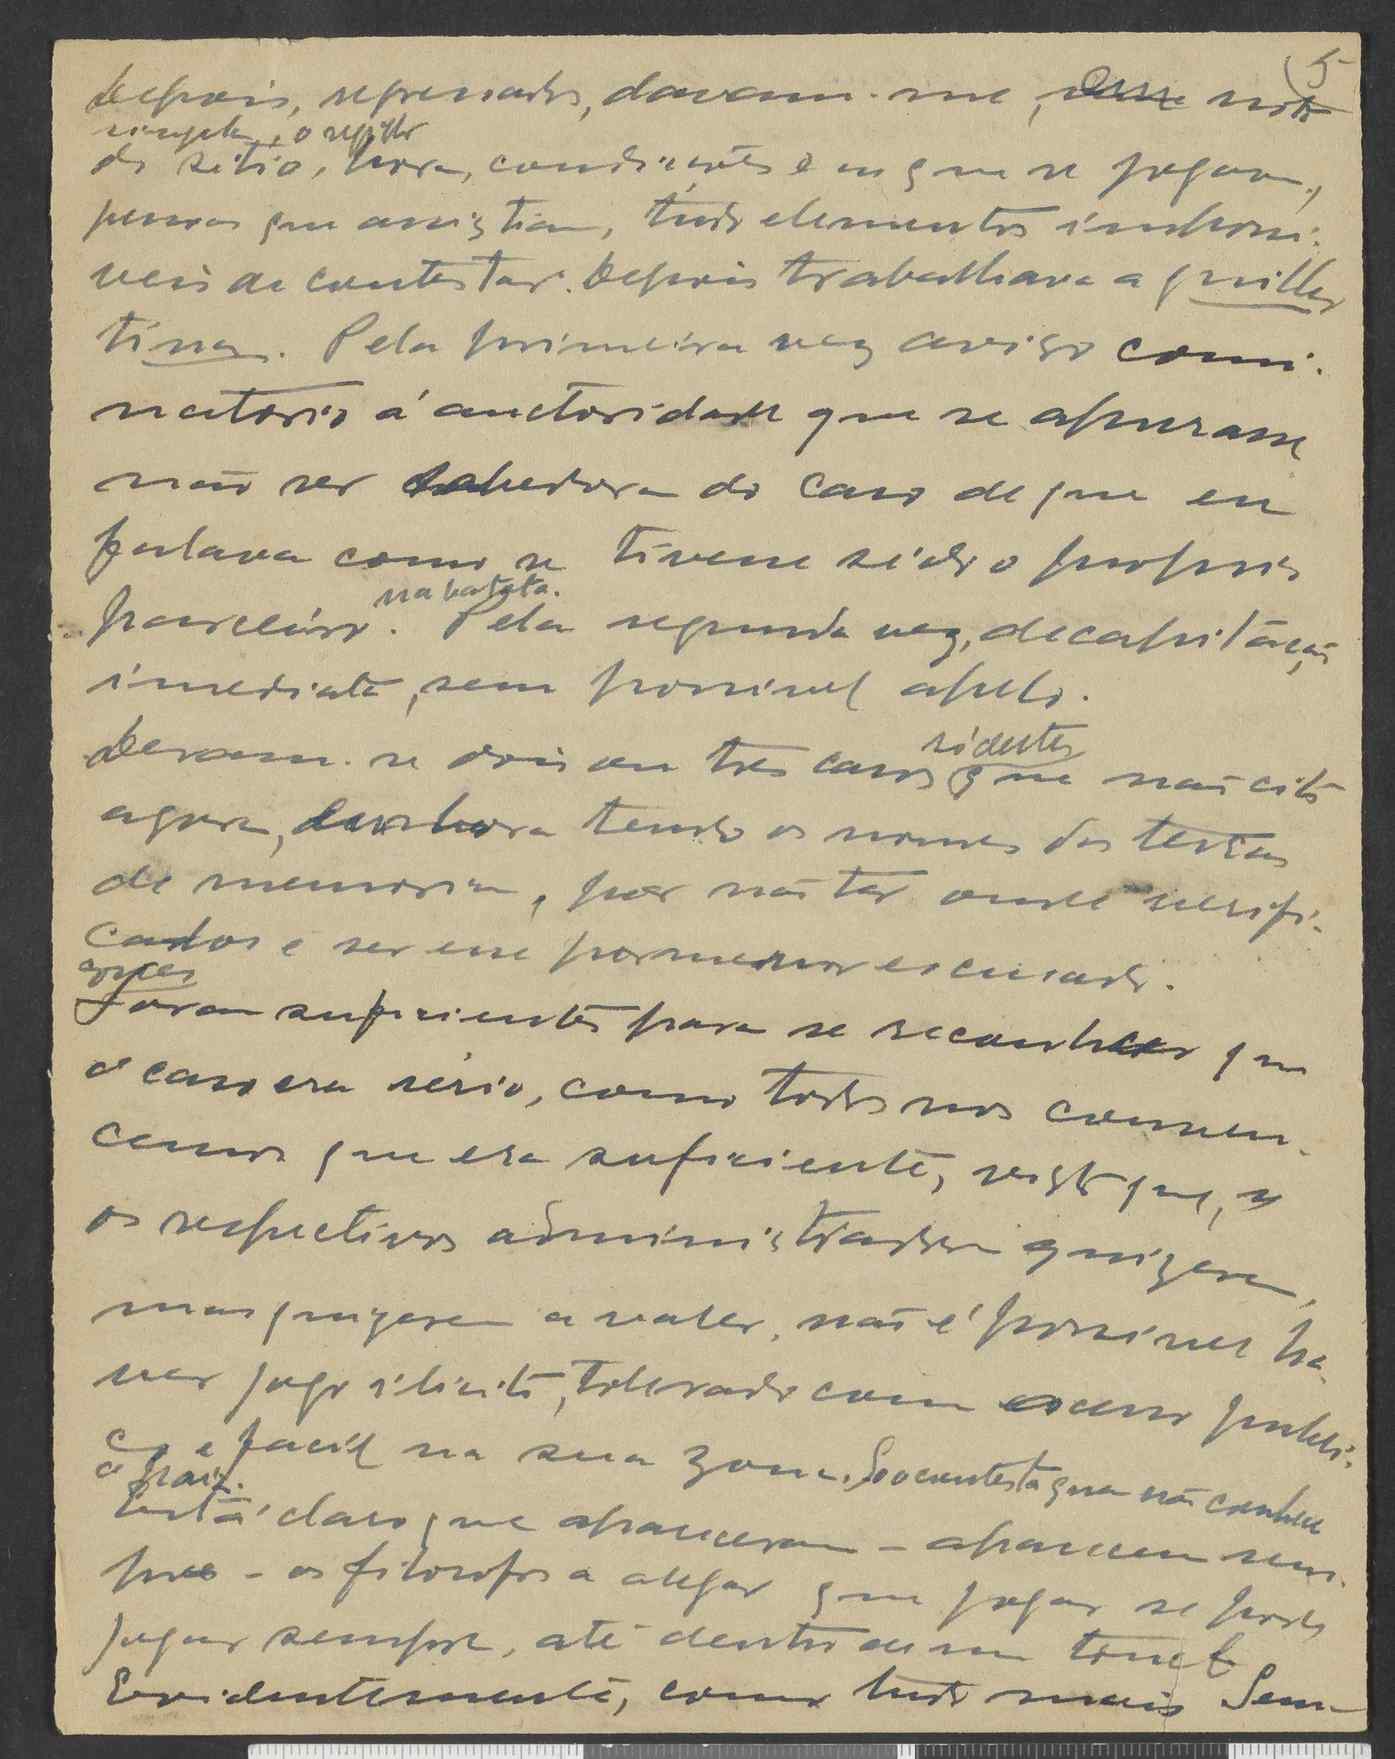 5
Depois, regressados, davam-me, nota
simples, o
do sitio, hora, condições em que se jogava,
pessoas que assistiam, tudo elementos impossi-
veis de contestar. Depois trabalhava a guilho
tina. Pela primeira vez aviso comi-
natorio á auctoridade que se apurasse
não ser sabedora do caso de que eu
falava como se tivesse sido o proprio
na batota.
parceiro. Pela segunda vez, decapitação
imediata, sem possivel apelo.
Deram-se dois ou tres casos que não cito
agora, embora tendo os nomes das terras
de memoria, por não ter onde verifi-
cados e ser esse pormenor escusado.
Foram suficientes para se reconhecer que
o caso era sério, como todos nos conven-
cemos que era suficiente, visto que, se
os respectivos administradores quizerem,
mas quizerem a valer, não é possivel ha-
ver jogo ilicito, tolerado com acesso publi-
co e facil na sua zona. Só o contesta quem não conhece
o paiz.
Está claro que apareceram - aparecem sem-
pre - os filosofos a alegar que jogar se pode
jogar sempre, até dentro de um tonel
Evidentemente, como tudo mais Sem